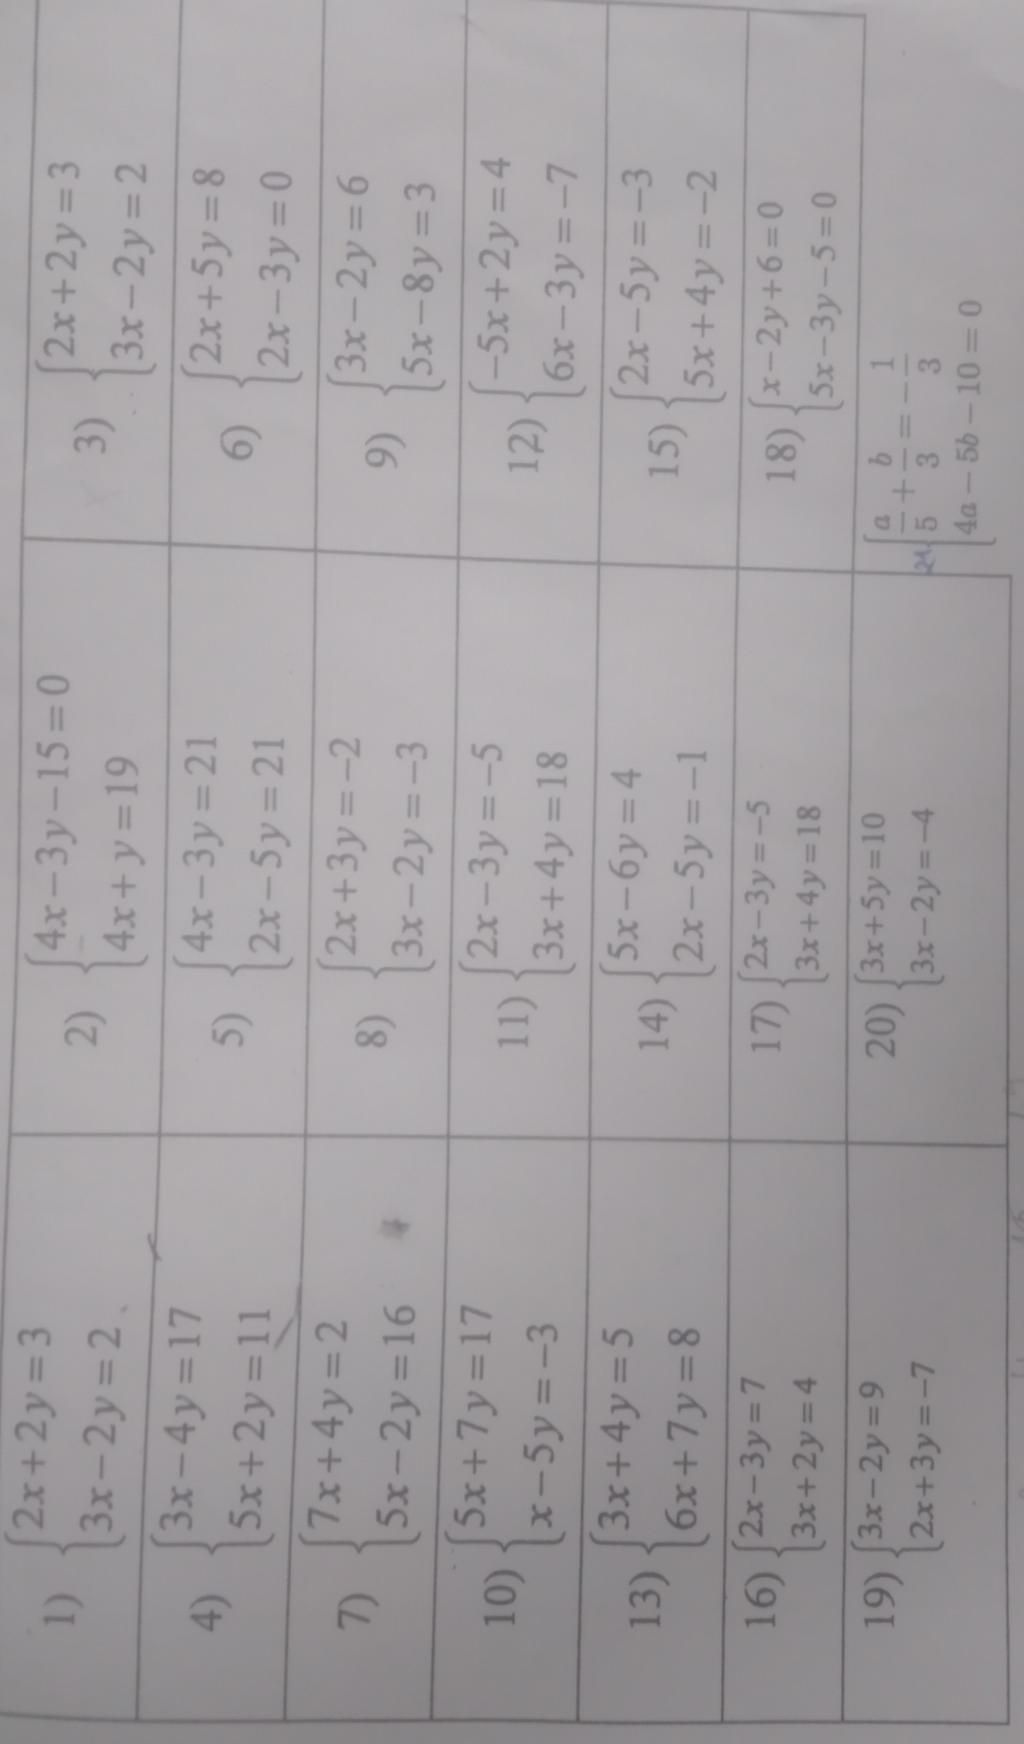 1) {2x+2y=3
3x−2y=2
2) {4x−3y−15=0
4x+y=19
3) {2x+2y=3
3x−2y=2
4) {3x−4y=17
5x+2y=11
5) {4x−3y=21
2x−5y=21
6) {2x+5y=8
2x−3y=0
7) {7x+4y=2
5x−2y=16
8) {2x+3y=−2
3x−2y=−3
9) {3x−2y=6
5x−8y=3
10) {5x+7y=17
x−5y=−3
11) {2x−3y=−5
3x+4y=18
12) {−5x+2y=4
6x−3y=−7
13) {3x+4y=5
6x+7y=8
14) {5x−6y=4
2x−5y=−1
15) {2x−5y=−3
5x+4y=−2
16) {2x−3y=7
3x+2y=4
17) {2x−3y=−5
3x+4y=18
18) {x−2y+6=0
5x−3y−5=0
19) {3x−2y=9
2x+3y=−7
20) {3x+5y=10
3x−2y=−4
21. {a/5+b/3=−1/3
4a−5b−10=0